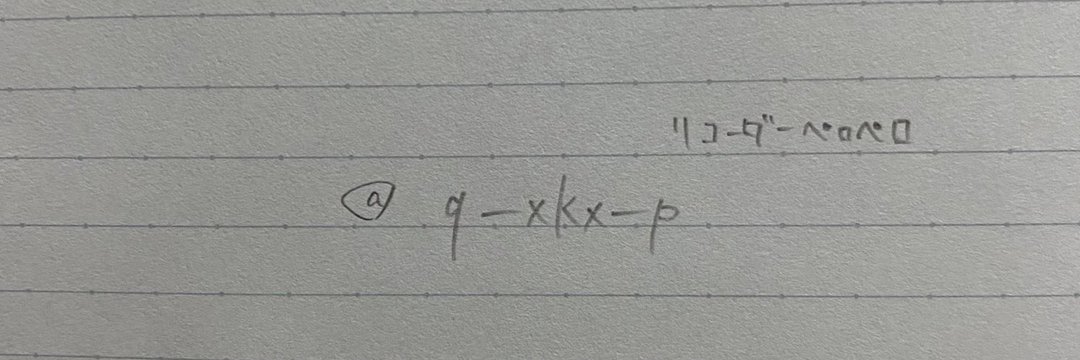 リコーダーペロペロ
ⓐ q-xkx-p